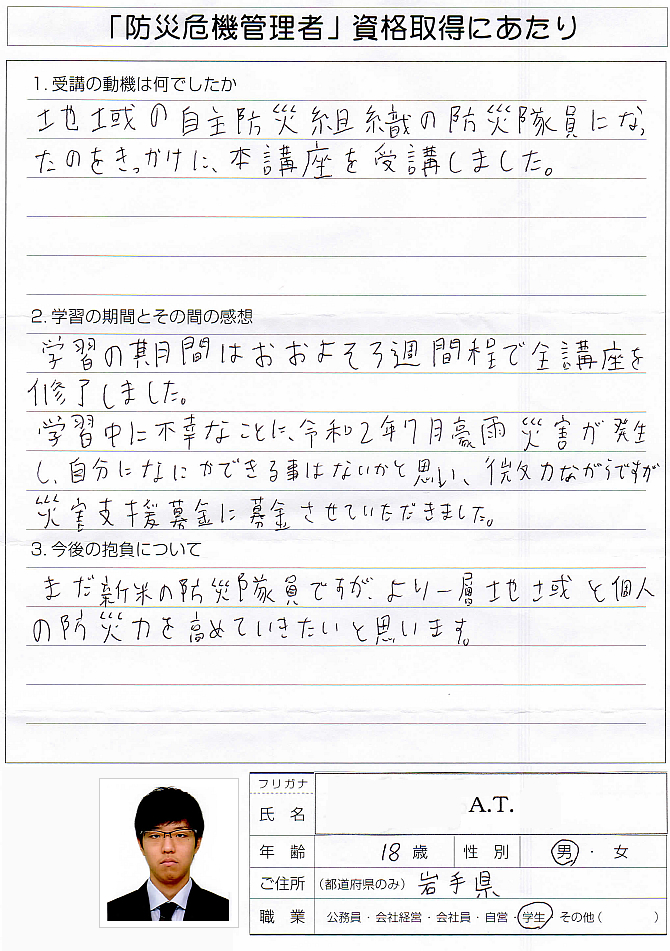 「防災危機管理者」資格取得にあたり
1. 受講の動機は何でしたか
地域の自主防災組織の防災隊員になっ
たのをきっかけに、本講座を受講しました。
2. 学習の期間とその間の感想
学習の期間はおおよそ3週間程で全講座を
修了しました。
学習中に不幸なことに、令和2年7月豪雨災害が発生
し、自分になにかできる事はないかと思い、微力ながらですが
災害支援募金に募金させていただきました。
3. 今後の抱負について
まだ新米の防災隊員ですが、より一層地域と個人
の防災力を高めていきたいと思います。
フリガナ
氏 名 A.T.
年 齢 18 歳 性 別 男 ・ 女
ご住所 (都道府県のみ) 岩手県
職 業 公務員・会社経営・会社員・自営・学生・その他( )